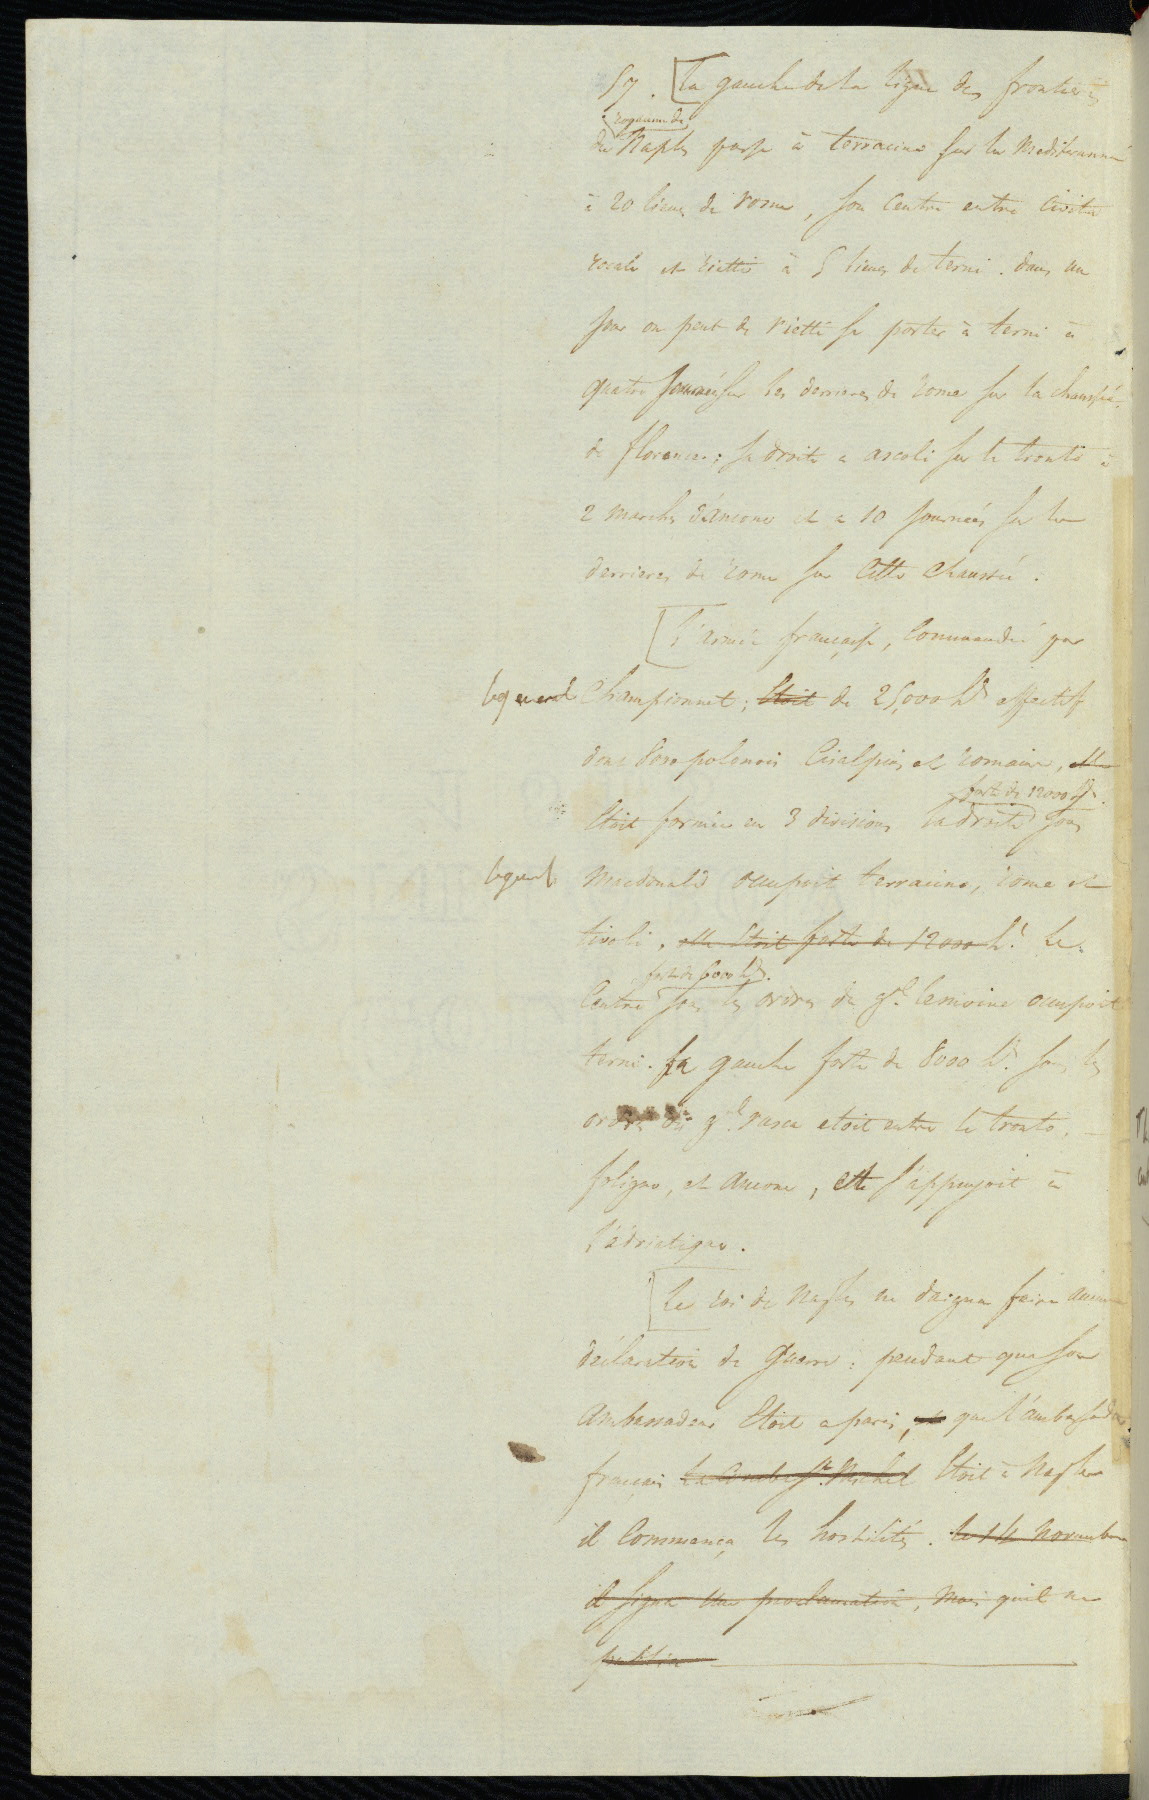 57. [la gauche de la ligne des frontieres
royaume de
de Naples passe à terracine sur la Mediterrannée
à 20 lieues de rome, son Centre entre Civita
reale et rietti à 5 lieues de terni. dans un
jour on peut de rietti se porter à terni à
quatre journées sur les derrieres de rome sur la chaussée
de florence; sa droite a ascoli sur le tronto à
2 marches d'ancone et a 10 journées sur les
derrieres de rome sur Cette Chaussée.
[l'armée française, Commandée par
Championnet; Etoit de 25,000 h.s effectif
dont 8000 polonois Cisalpins et romains, elle
forte de 12000 h.s
Etoit formée en 3 divisions la droite sous
Macdonald occupoit terracine, rome et
tivoli. elle Etoit forte de 12000 h.s Le
forte de 5000 h.s
Centre sous les ordres du g.al lemoine occupoit
terni. la gauche forte de 8000 h.s sous les
ordres du g.al rusca etoit entre le tronto,
foligno, et Ancone, elle s'appuyoit à
l'adriatique.
[Le roi de Naples ne daigna faire aucune
déclaration de Guerre: pendant que son
Ambassadeur Etoit a paris, et que l'ambassadeur
français La Combe S.t Michel Etoit à Naples
il Commença les hostilités. le 14 Novembre
il signa Une proclamation, Mais qu'il ne
publia